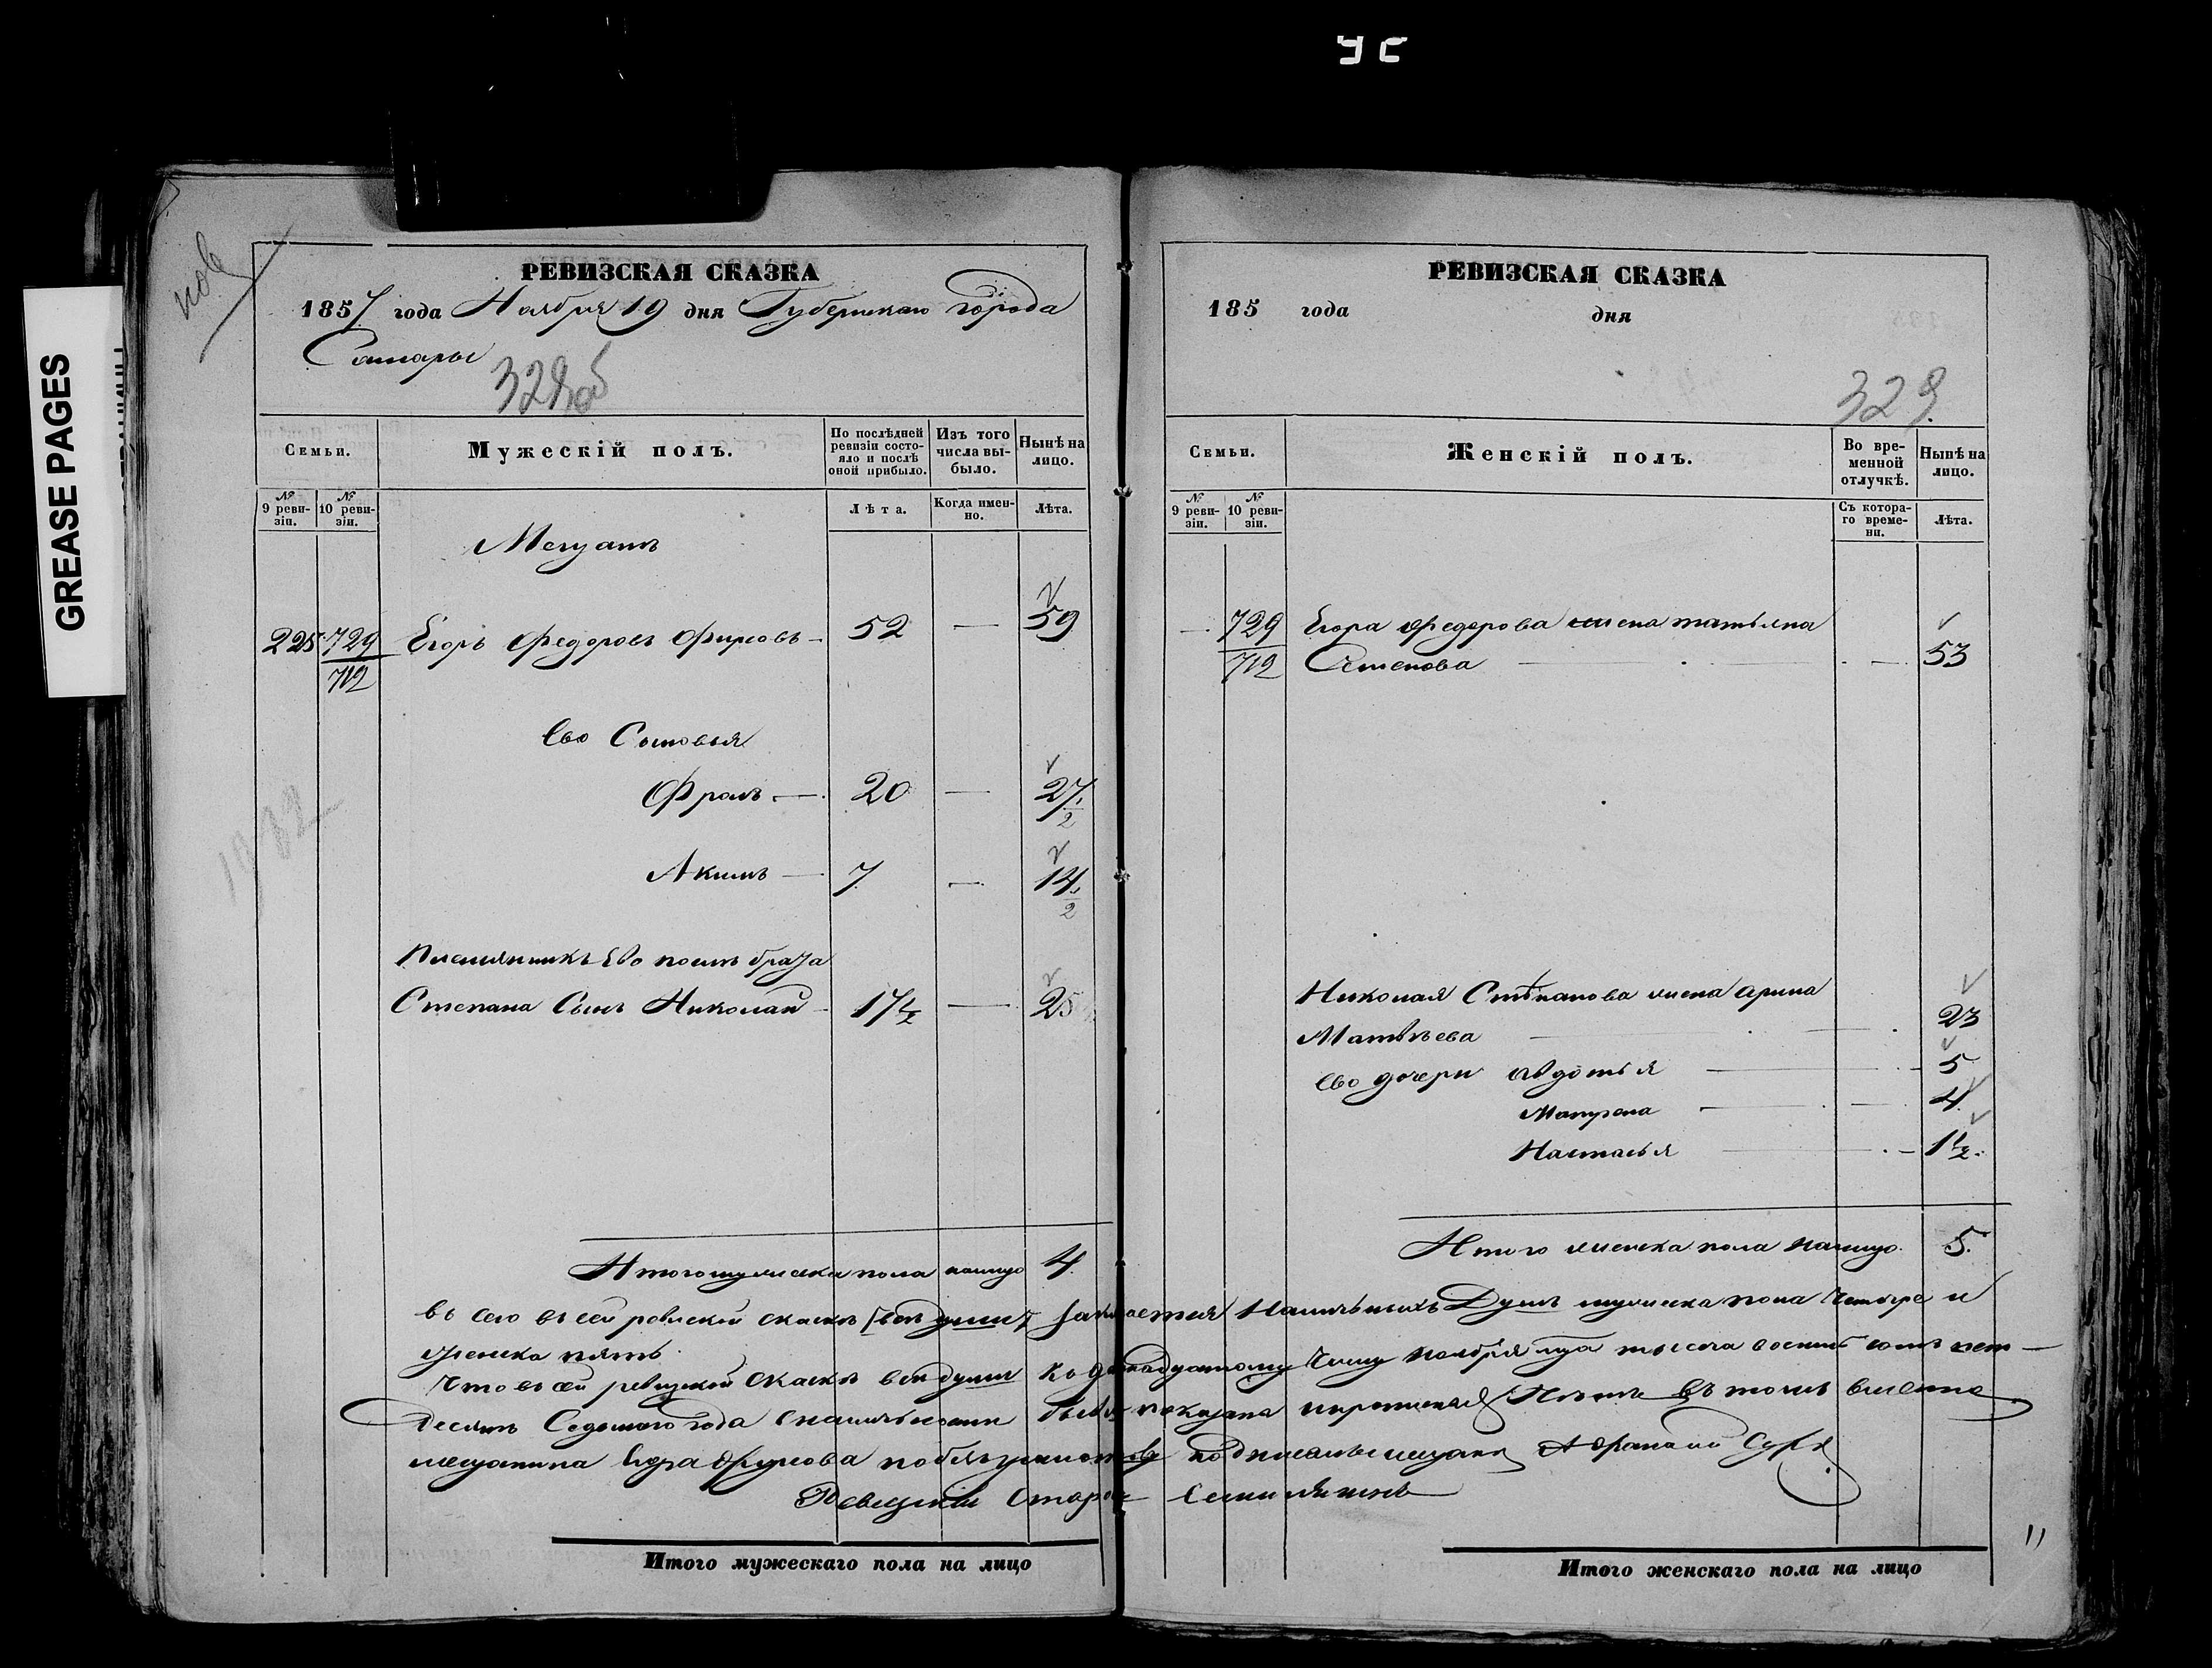 GREASE PAGES
РЕВИЗСКАЯ СКАЗКА
1857 года Ноября 19 дня Губернскаго города
Самары
328 об
Семьи.
Мужескій полъ.
По послѣдней ревизіи состояло и послѣ оной прибыло.
Изъ того числа выбыло.
Нынѣ на лицо.
№ 9 ревизіи.
№ 10 ревизіи.
Лѣта.
Когда именно.
Лѣта.
Мещанъ
225 729 Егоръ Федоровъ Фирсовъ — 52 — 59
712
Ево Сыновья
Фролъ — 20 — 27 1/2
Акимъ — 7 — 14 1/2
Племянникъ Ево посля брата
Степана Сынъ Николай — 17 1/2 — 25
Итого мужеска пола налицо 4
РЕВИЗСКАЯ СКАЗКА
185 года дня
329
Семьи.
Женскій полъ.
Во временной отлучкѣ.
Нынѣ на лицо.
№ 9 ревизіи.
№ 10 ревизіи.
Съ котораго времени.
Лѣта.
— 729 Егора Федорова жена татьяна
712 Семенова — 53
Николая Стѣпанова жена арина
Матвѣева — 23
Ево дочери авдотья — 5
Матрена — 4
Настасья — 1 1/2
Итого женска пола налицо 5.
Всего въ сей ревиской скаскѣ наличныхъ Душъ мужеска пола Четыре и
женска пять.
Что въ сей ревизкой Скаскѣ вси души Ноября тысяча восемь сотъ петь
десятъ Седьмого года показана въ томъ вместо
мещанина Егора Фирсова подписался мещанинъ
Ревизкій Староста
Итого мужескаго пола на лицо
Итого женскаго пола на лицо
11